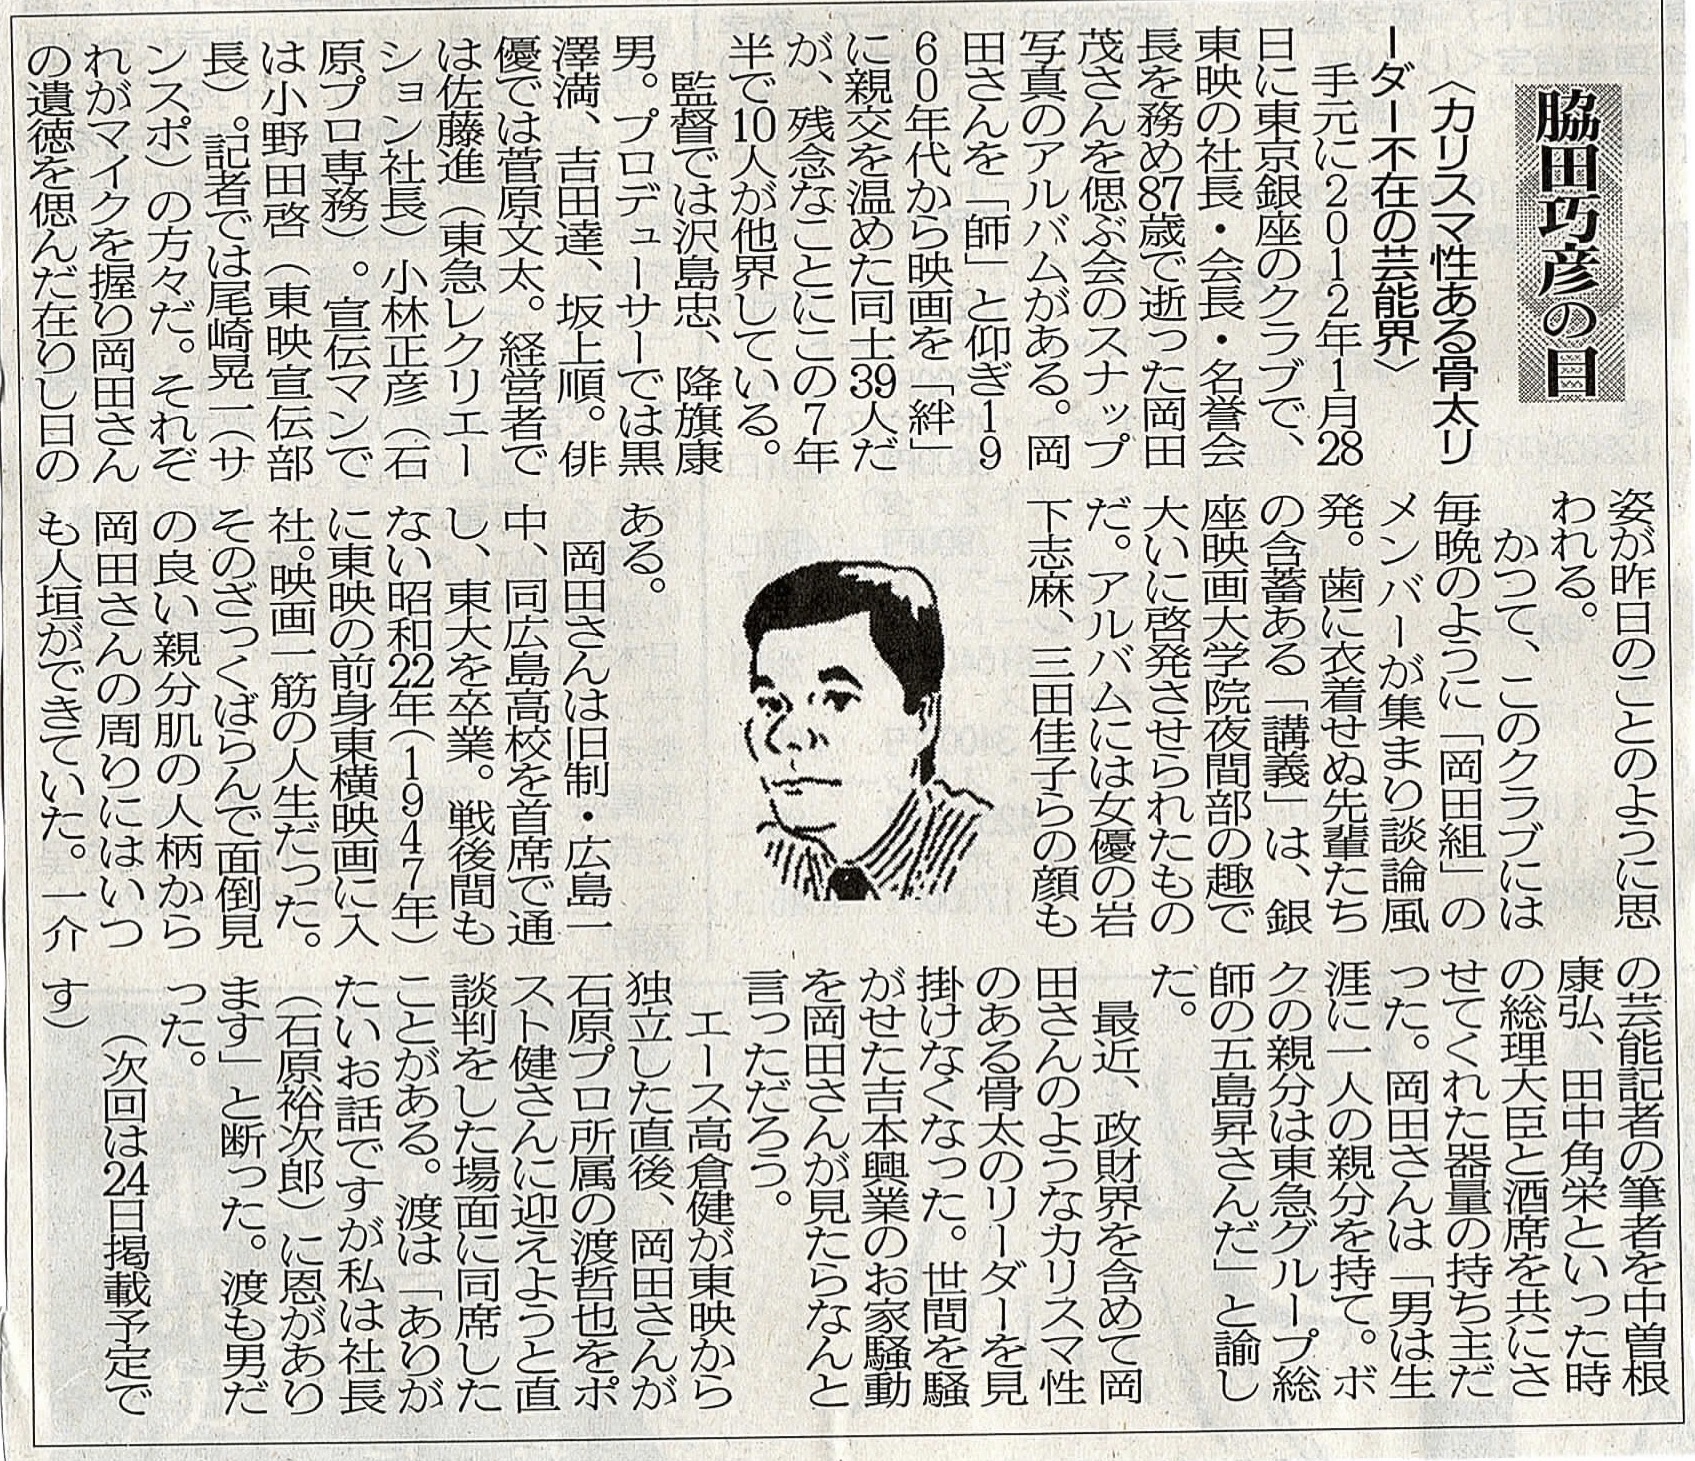 脇田巧彦の目
〈カリスマ性ある骨太リ
ーダー不在の芸能界〉
手元に2012年1月28
日に東京銀座のクラブで、
東映の社長・会長・名誉会
長を務め87歳で逝った岡田
茂さんを偲ぶ会のスナップ
写真のアルバムがある。岡
田さんを「師」と仰ぎ19
60年代から映画を「絆」
に親交を温めた同士39人だ
が、残念なことにこの7年
半で10人が他界している。
監督では沢島忠、降旗康
男。プロデューサーでは黒
澤満、吉田達、坂上順。俳
優では菅原文太。経営者で
は佐藤進（東急レクリエー
ション社長）小林正彦（石
原プロ専務）。宣伝マンで
は小野田啓（東映宣伝部
長）。記者では尾崎晃一（サ
ンスポ）の方々だ。それぞ
れがマイクを握り岡田さん
の遺徳を偲んだ在りし日の
姿が昨日のことのように思
われる。
かつて、このクラブには
毎晩のように「岡田組」の
メンバーが集まり談論風
発。歯に衣着せぬ先輩たち
の含蓄ある「講義」は、銀
座映画大学院夜間部の趣で
大いに啓発させられたもの
だ。アルバムには女優の岩
下志麻、三田佳子らの顔も
ある。
岡田さんは旧制・広島一
中、同広島高校を首席で通
し、東大を卒業。戦後間も
ない昭和22年（1947年）
に東映の前身東横映画に入
社。映画一筋の人生だった。
そのざっくばらんで面倒見
の良い親分肌の人柄から
岡田さんの周りにはいつ
も人垣ができていた。一介
の芸能記者の筆者を中曽根
康弘、田中角栄といった時
の総理大臣と酒席を共にさ
せてくれた器量の持ち主だ
った。岡田さんは「男は生
涯に一人の親分を持て。ボ
クの親分は東急グループ総
師の五島昇さんだ」と諭し
だ。
最近、政財界を含めて岡
田さんのようなカリスマ性
のある骨太のリーダーを見
掛けなくなった。世間を騒
がせた吉本興業のお家騒動
を岡田さんが見たらなんと
言っただろう。
エース高倉健が東映から
独立した直後、岡田さんが
石原プロ所属の渡哲也をポ
スト健さんに迎えようと直
談判をした場面に同席した
ことがある。渡は「ありが
たいお話ですが私は社長
（石原裕次郎）に恩があり
ます」と断った。渡も男だ
った。
（次回は24日掲載予定で
す）